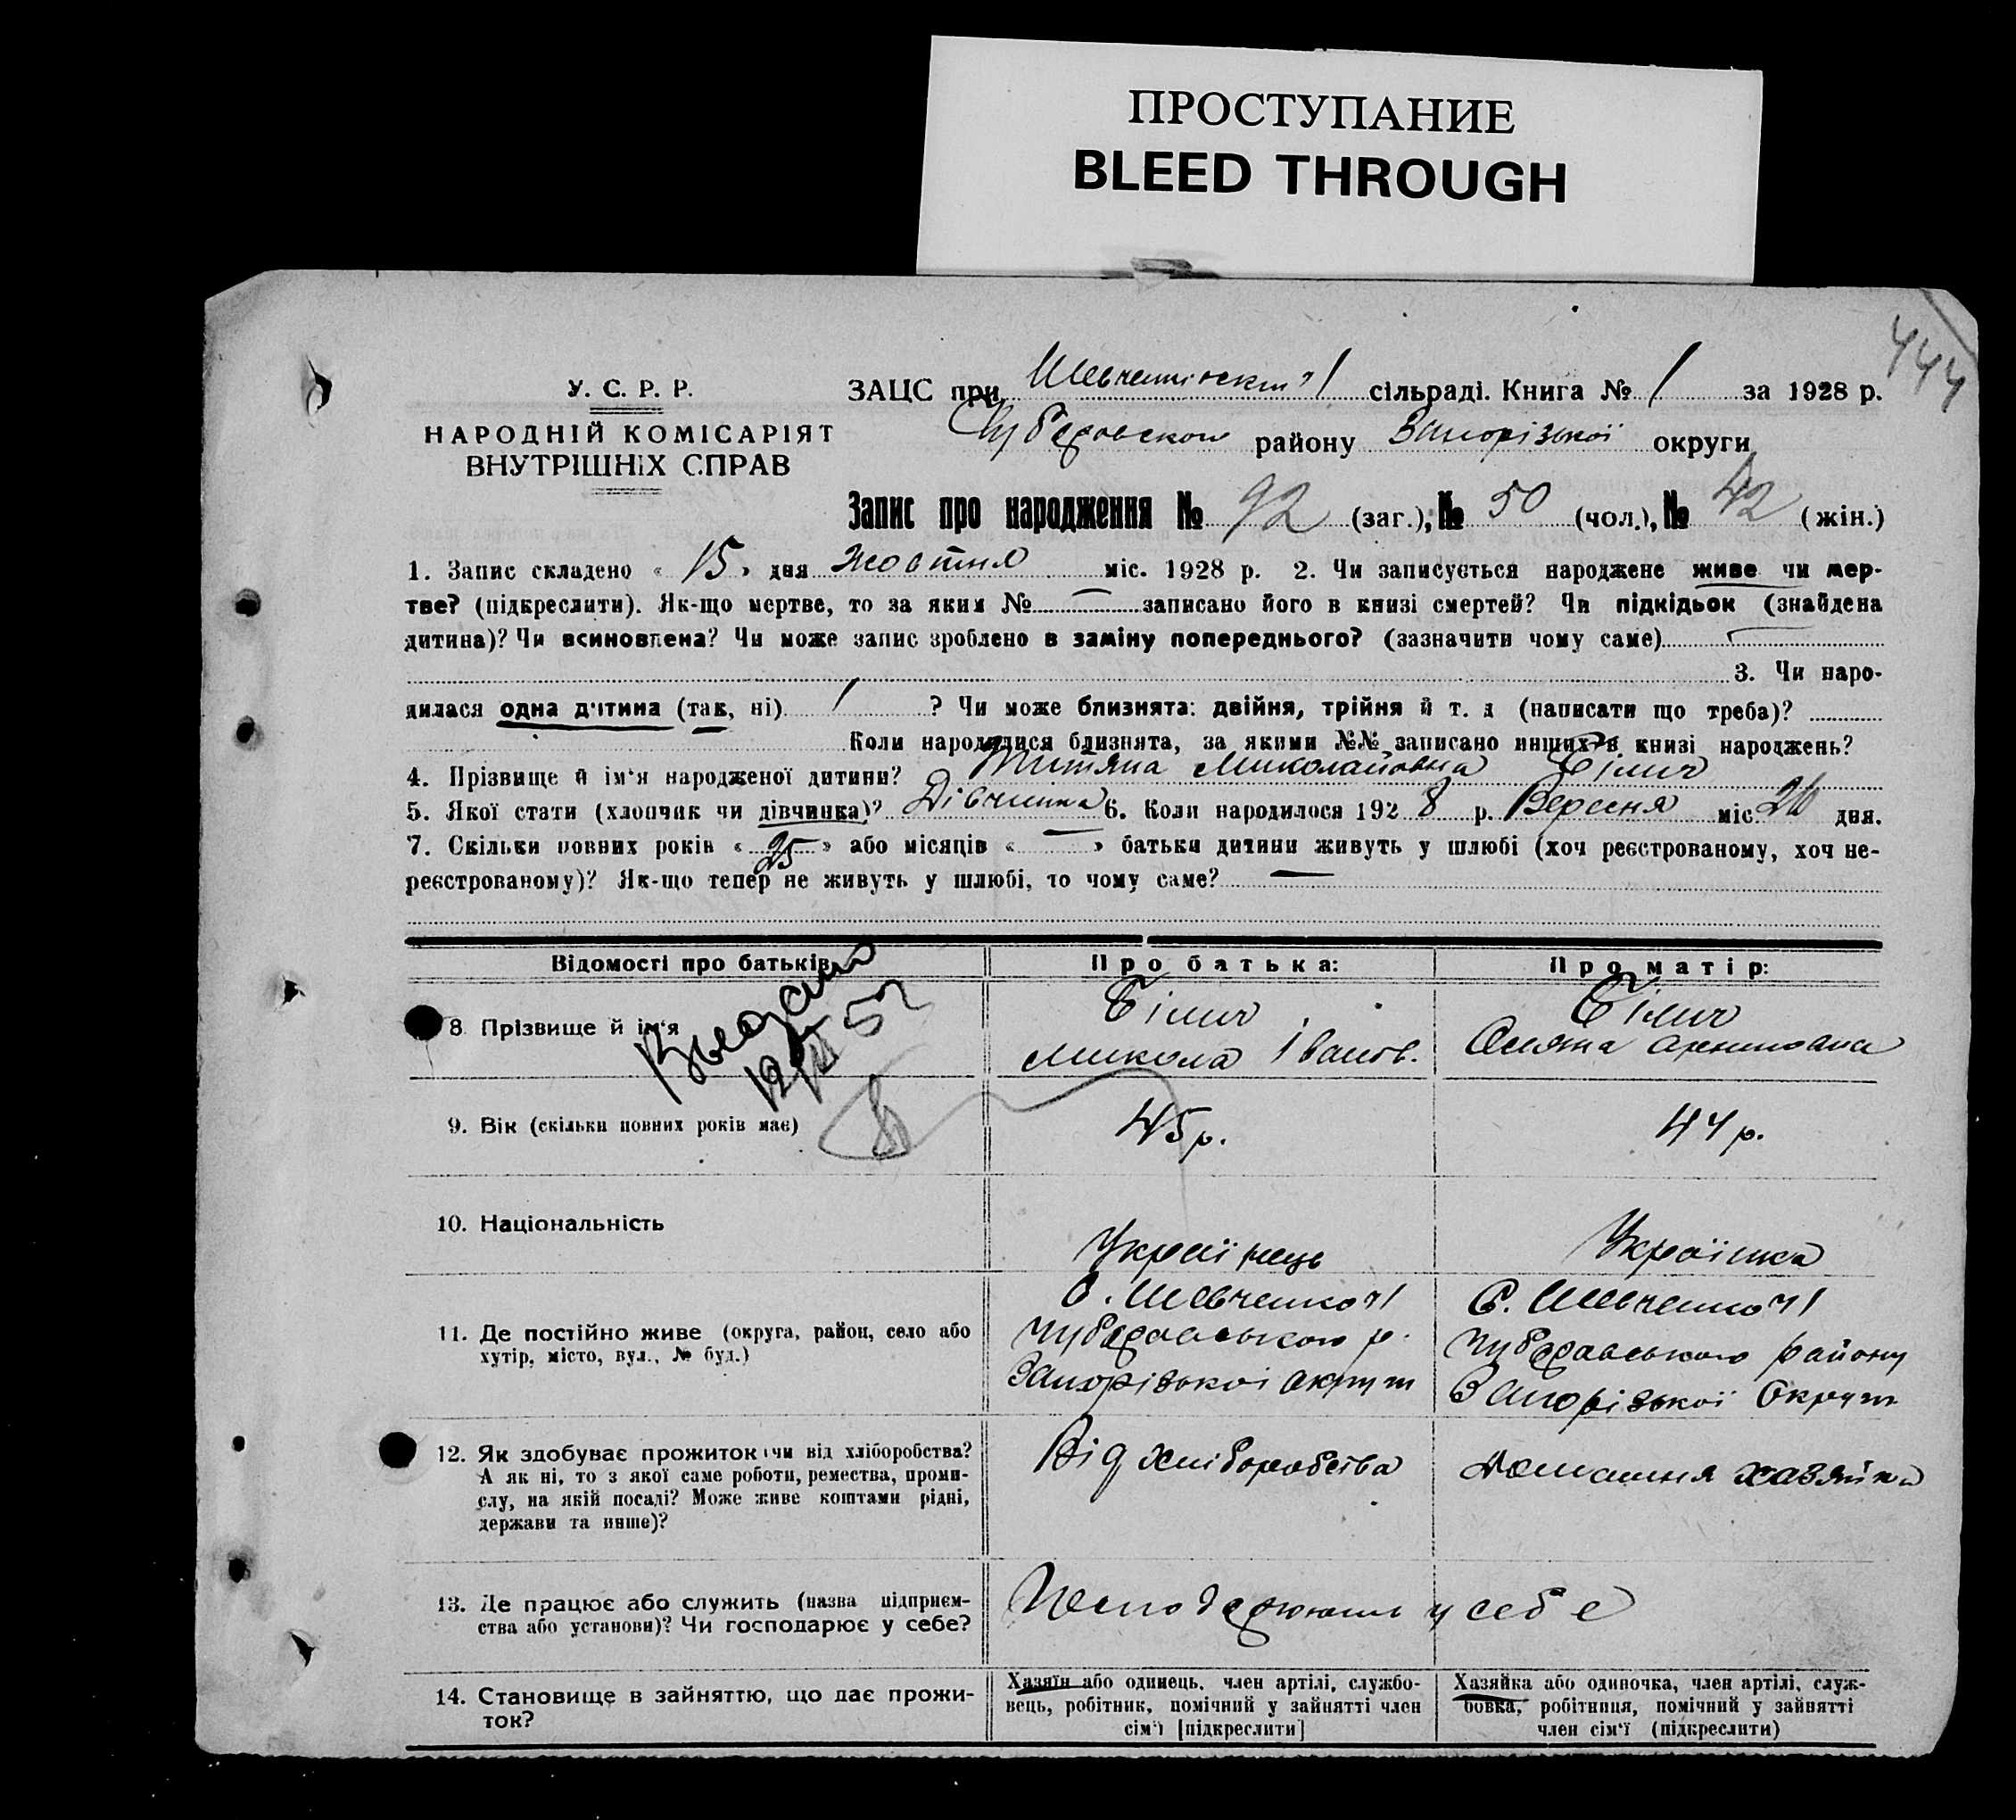 ПРОСТУПАНИЕ
BLEED THROUGH
444
У. С. Р. Р.
НАРОДНІЙ КОМІСАРІЯТ
ВНУТРІШНІХ СПРАВ
ЗАЦС при сільраді. Книга № 1 за 1928 р.
району Запорізької округи
Запис про народження № 92 (заг.), № 50 (чол.), № 42 (жін.)
1. Запис складено « 15 » дня Жовтня міс. 1928 р. 2. Чи записується народжене живе чи мер-
тве? (підкреслити). Як-що мертве, то за яким № — записано його в книзі смертей? Чи підкідьок (знайдена
дитина)? Чи всиновлена? Чи може запис зроблено в заміну попереднього? (зазначити чому саме)
3. Чи наро-
дилася одна дитина (так, ні) ? Чи може близнята: двійня, трійня й т. д (написати що треба)?
Коли народилися близнята, за якими №№ записано инших в книзі народжень?
4. Прізвище й ім'я народженої дитини? Миколаївна Біляч
5. Якої стати (хлопчик чи дівчинка)? Дівчинка 6. Коли народилося 192 8 р. Вересня міс. 26 дня.
7. Скільки повних років « 25 » або місяців « — » батьки дитини живуть у шлюбі (хоч реєстрованому, хоч не-
реєстрованому)? Як-що тепер не живуть у шлюбі, то чому саме? —
Відомості про батьків
Про батька:
Про матір:
8 Прізвище й ім'я
Микола Іванов.
9. Вік (скільки повних років має)
45 р.
44 р.
10. Національність
Українець
Українка
11. Де постійно живе (округа, район, село або
хутір, місто, вул., № буд.)
С. Шевченко
р.
Запорізької округи
С. Шевченко
району
Запорізької Округи
12. Як здобуває прожиток чи від хліборобства?
А як ні, то з якої саме роботи, ремества, проми-
слу, на якій посаді? Може живе коштами рідні,
держави та инше)?
Від хліборобства
домашня хазяйка
13. Де працює або служить (назва підприєм-
ства або установи)? Чи господарює у себе?
Господарюють у себе
14. Становище в зайняттю, що дає прожи-
ток?
Хазяїн або одинець, член артілі, службо-
вець, робітник, помічний у зайнятті член
сім'ї [підкреслити]
Хазяйка або одиночка, член артілі, служ-
бовка, робітниця, помічний у зайнятті
член сім'ї (підкреслити)